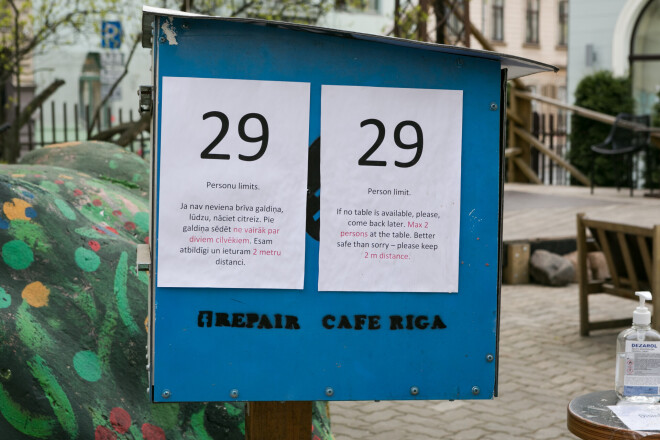 29
Personu limits.
Ja nav neviena brīva galdiņa,
lūdzu, nāciet citreiz. Pie
galdiņa sēdēt ne vairāk par
diviem cilvēkiem. Esam
atbildīgi un ieturam 2 metru
distanci.
29
Person limit.
If no table is available, please,
come back later. Max 2
persons at the table. Better
safe than sorry – please keep
2 m distance.
REPAIR CAFE RIGA
P
DEZAROL